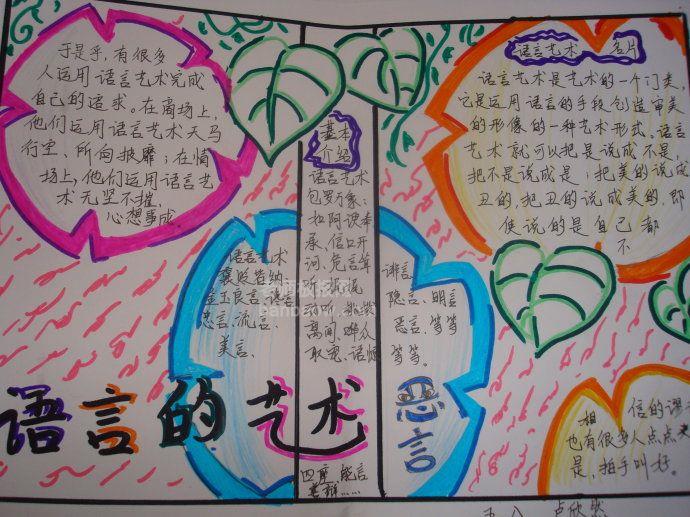 于是乎，有很多
人运用语言艺术完成
自己的追求。在商场上，
他们运用语言艺术天马
行空、所向披靡；在情
场上，他们运用语言艺
术无坚不摧，
心想事成
基本
介绍
语言艺术
包罗万象：
扣阿谀奉
承、信口开
河、危言耸
离间、哗众
取宠、语惊
四座、能言
善辩……
语言艺术
褒贬皆纳：
金玉良言、谎言、
忠言、流言、
美言、
谗言、
隐言、明言
恶言、等等
等等。
恶言
语言艺术 名片
语言艺术是艺术的一个门类，
它是运用语言的手段创造审美
的形像的一种艺术形式。语言
艺术就可以把是说成不是，
把不是说成是；把美的说成
丑的，把丑的说成美的，即
使说的是自己都
不
相信的谬
也有很多人点点
是，拍手叫好。
语言的艺术